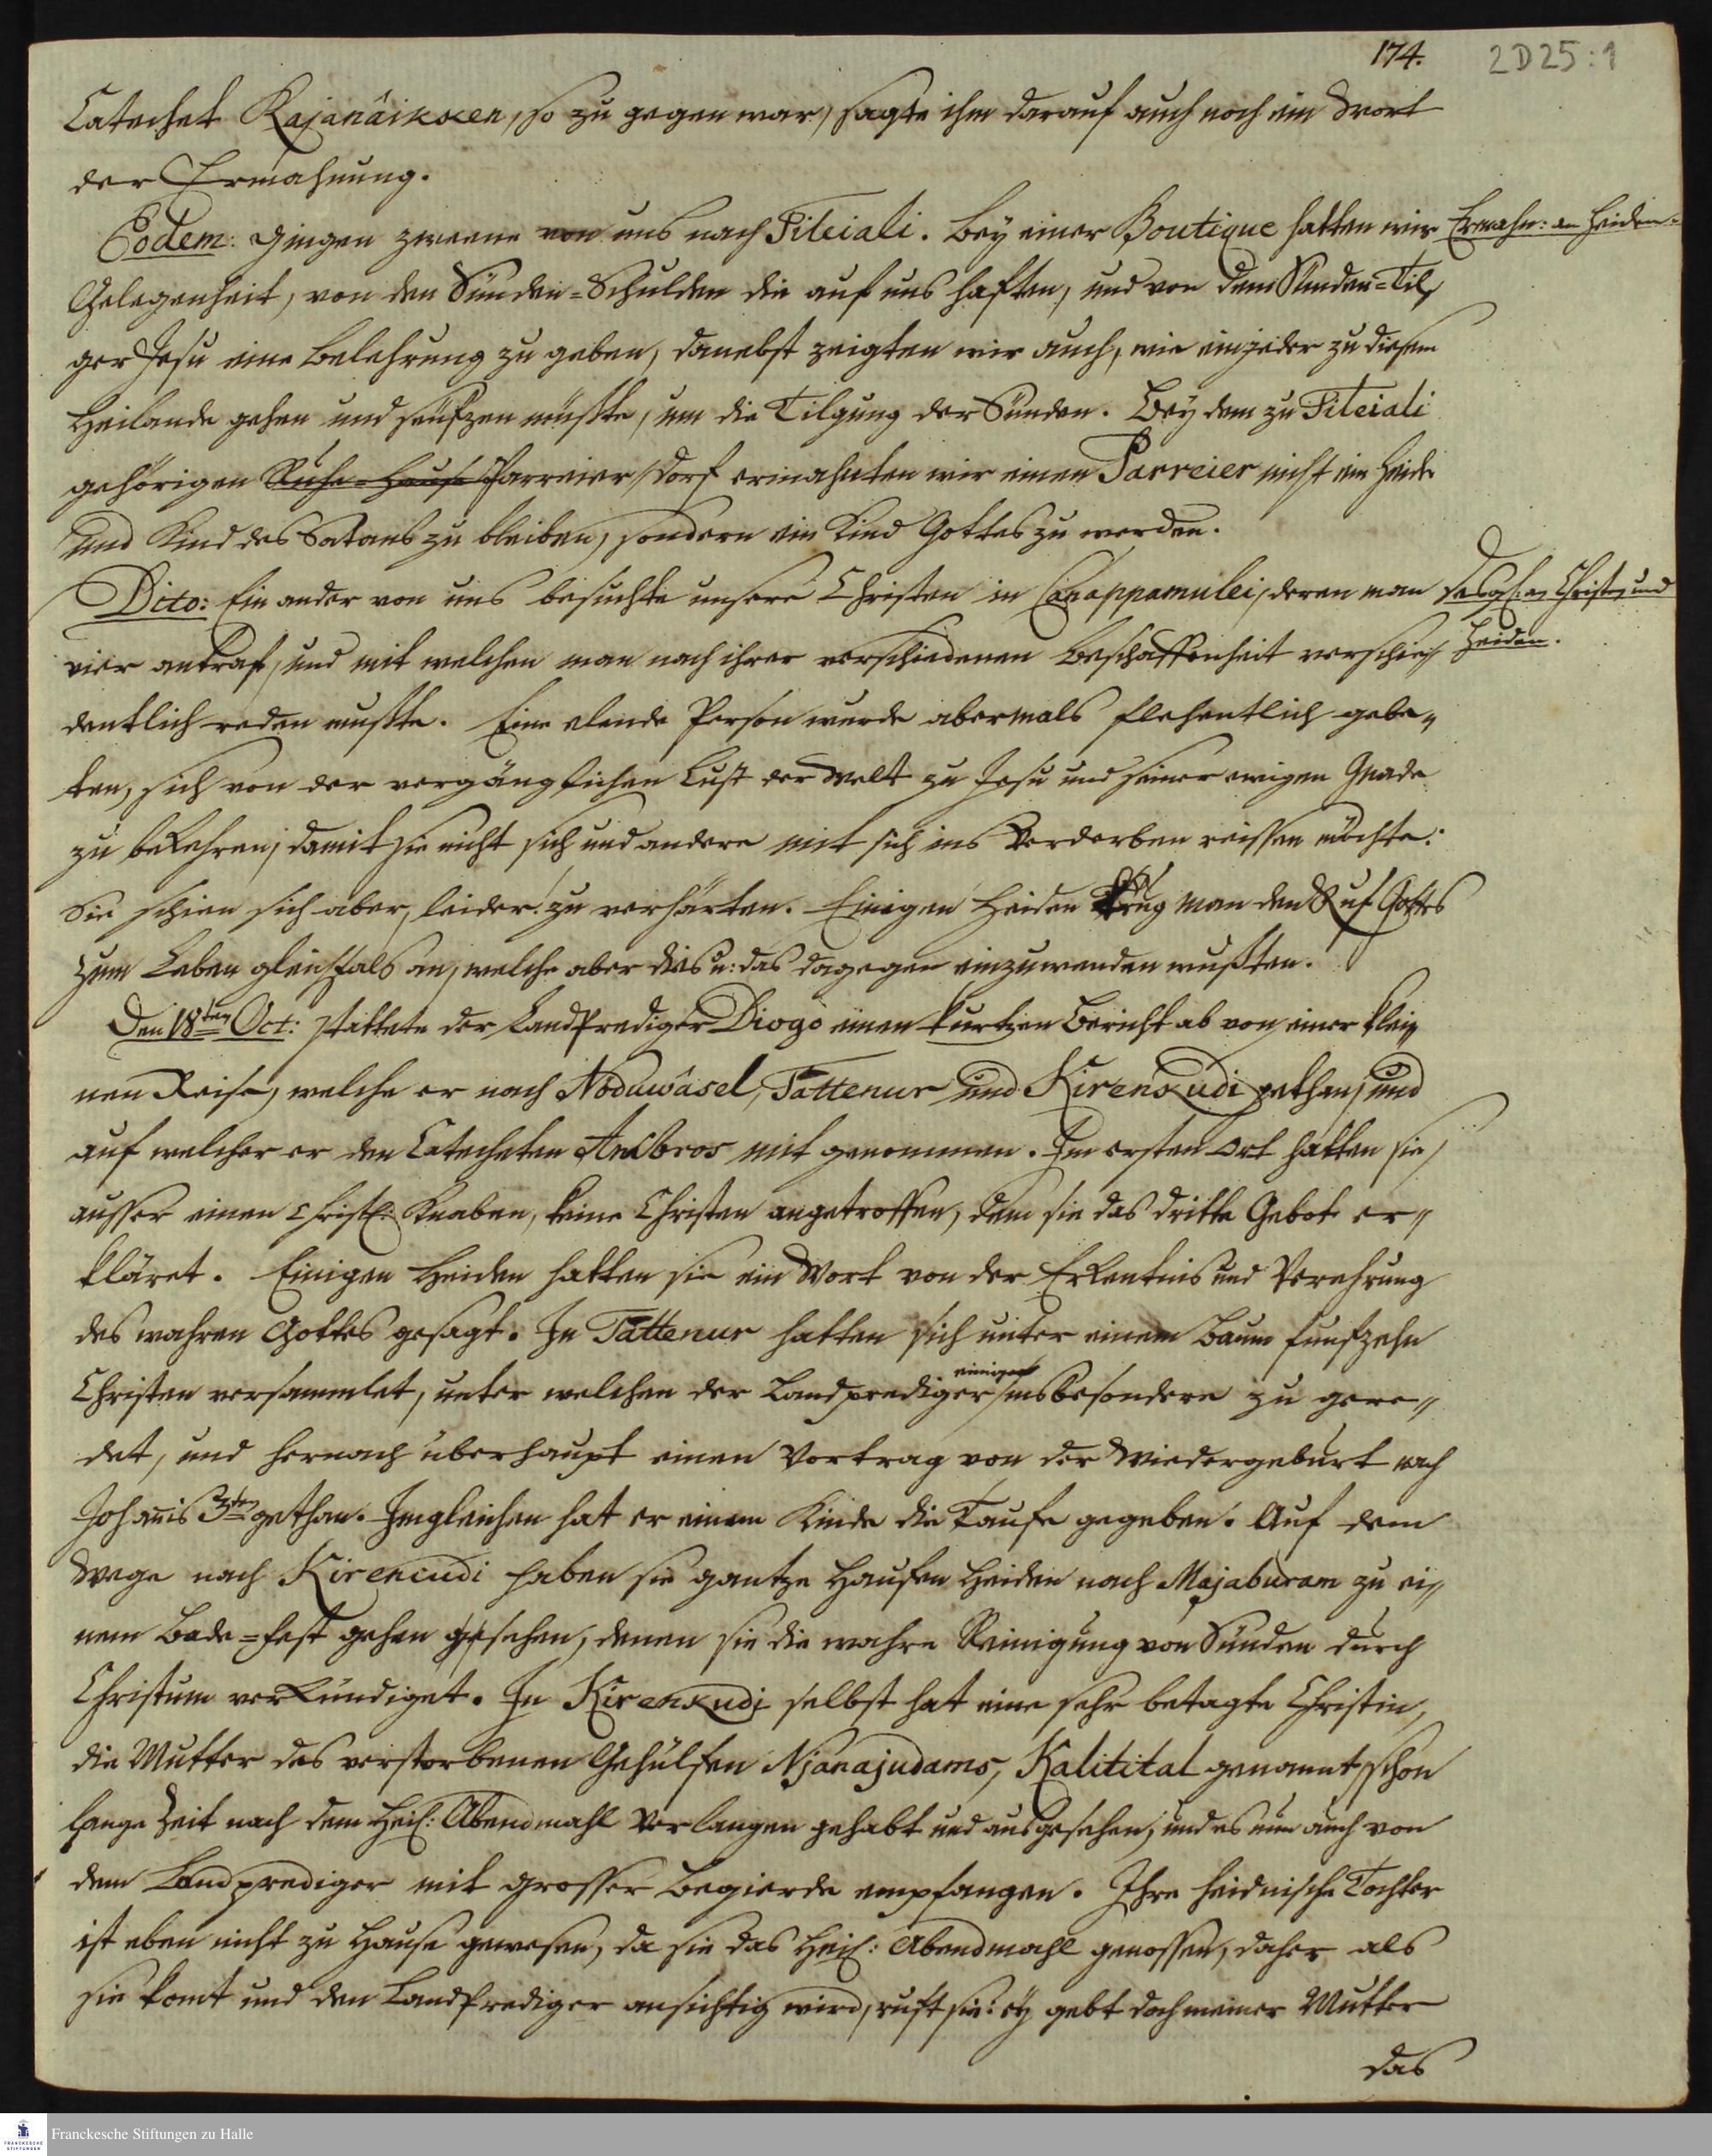 174.
2D25:1
Catechet Rajanâikken, so zu gegen war, sagte ihm darauf auch noch ein Wort
der Ermahnung.
Eodem: gingen zweene von uns nach Tileiali. Bey einer Boutique hatten wir
Ermahn: an Heiden.
Gelegenheit, von den Sünden-Schulden die auf uns haften, und von dem Sünden-Til-
ger Jesu eine Belehrung zu geben, danebst zeigten wir auch, wie einjeder zu diesem
Heilande gehen und seufzen müßte, um die Tilgung der Sünden. Bey dem zu Tileiali
gehörigen Ruhe-Hause Parreier dorf ermahnten wir einen Parreier nicht ein Heide
und Kind des Satans zu bleiben, sondern ein Kind Gottes zu werden.
Dito: Ein ander von uns besuchte unsere Christen in Canappamulei, deren man
desgl. an Christen und
Heiden.
vier antraf, und mit welchen man nach ihrer verschiedenen Beschaffenheit verschie-
dentlich reden mußte. Eine elende Person wurde abermals flehentlich gebe-
ten, sich von der vergänglichen Lust der Welt zu Jesu und seiner ewigen Gnade
zu bekehren, damit sie nicht sich und andere mit sich ins Verderben reissen möchte:
Sie schien sich aber, leider! zu verhärten. Einigen Heiden trug man den Ruf Gottes
zum Leben gleichfals an, welche aber dies u: das dagegen einzuwenden wußten.
Den 18ten Oct: stattete der LandPrediger Diogo einen kurtzen Bericht ab von einer klei-
nen Reise, welche er nach Noduwâsel, Tattenur und Kirenkudi gethan, und
auf welcher er den Catecheten Ambros mit genommen. Im ersten Ort hatten sie,
ausser einen Christl: Knaben, keine Christen angetroffen, dem sie das dritte Gebot er-
kläret. Einigen Heiden hatten sie ein Wort von der Erkentnis und Verehrung
des wahren Gottes gesagt. In Tattenur hatten sich unter einem Baum funfzehn
Christen versammlet, unter welchen der Landprediger einigen insbesondere zu gere-
det, und hernach überhaupt einen Vortrag von der Wiedergeburt nach
Johanis 3ten gethan. Imgleichen hat er einem Kinde die Taufe gegeben. Auf dem
Wege nach Kirencudi haben sie gantze Haufen Heiden nach Majaburam zu ei-
nem Bade-Fest gehen gesehen, denen sie die wahre Reinigung von Sünden durch
Christum verkündiget. In Kirenkudi selbst hat eine sehr betagte Christin,
die Mutter des verstorbenen Gehülfen Njanajudams, Kalitital genannt, schon
lange Zeit nach dem Heil: Abendmahl Verlangen gehabt und ausgesehen, und es nun auch von
dem Landprediger mit grosser Begierde empfangen. Ihre heidnische Tochter
ist eben nicht zu Hause gewesen, da sie das Heil: Abendmahl genossen, daher als
sie komt und den LandPrediger ansichtig wird, ruft sie: ey gebt doch meiner Mutter
das
Franckesche Stiftungen zu Halle